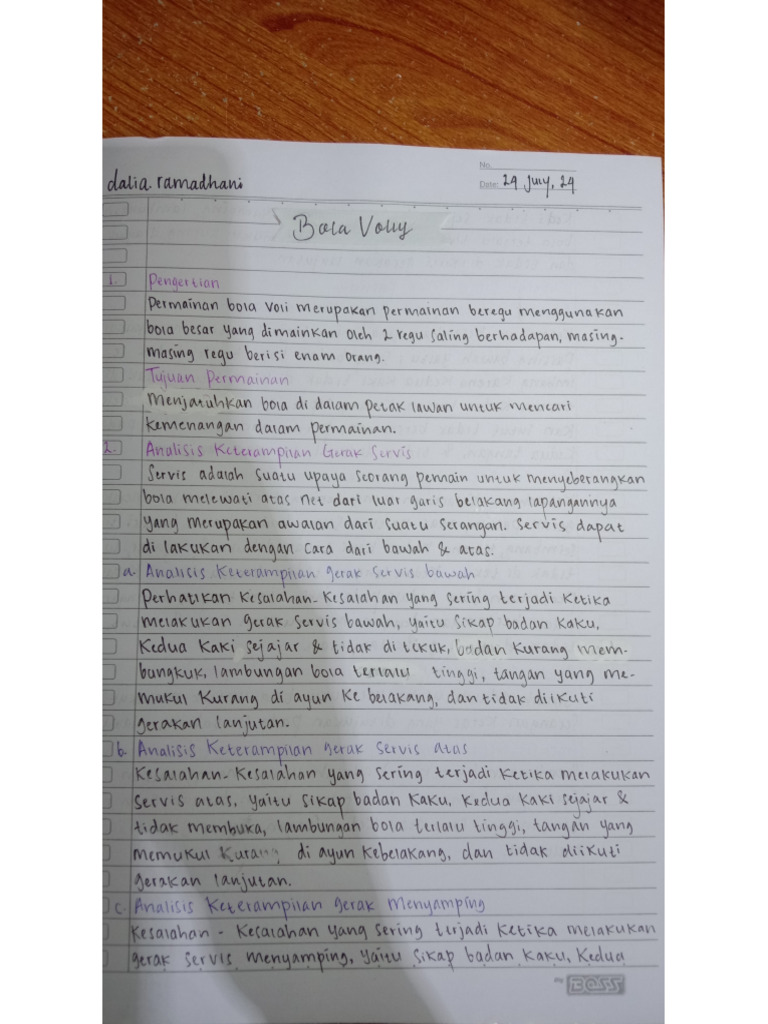 No.
dalia ramadhani
Date: 29 July, 24
Bola Volly
1. Pengertian
Permainan bola voli merupakan permainan beregu menggunakan
bola besar yang dimainkan oleh 2 regu saling berhadapan, masing-
masing regu berisi enam orang.
Tujuan Permainan
Menjatuhkan bola di dalam petak lawan untuk mencari
kemenangan dalam permainan.
2. Analisis Keterampilan Gerak Servis
Servis adalah suatu upaya seorang pemain untuk menyeberangkan
bola melewati atas net dari luar garis belakang lapangannya
yang merupakan awalan dari suatu serangan. Servis dapat
di lakukan dengan cara dari bawah & atas.
a. Analisis Keterampilan gerak servis bawah
Perhatikan kesalahan-kesalahan yang sering terjadi ketika
melakukan gerak servis bawah, yaitu sikap badan kaku,
kedua kaki sejajar & tidak di tekuk, badan kurang mem-
bungkuk, lambungan bola terlalu tinggi, tangan yang me-
mukul kurang di ayun ke belakang, dan tidak diikuti
gerakan lanjutan.
b. Analisis Keterampilan gerak servis atas
Kesalahan-kesalahan yang sering terjadi ketika melakukan
servis atas, yaitu sikap badan kaku, kedua kaki sejajar &
tidak membuka, lambungan bola terlalu tinggi, tangan yang
memukul kurang di ayun kebelakang, dan tidak diikuti
gerakan lanjutan.
c. Analisis Keterampilan gerak menyamping
Kesalahan - kesalahan yang sering terjadi ketika melakukan
gerak servis menyamping, yaitu sikap badan kaku, kedua
BOSS